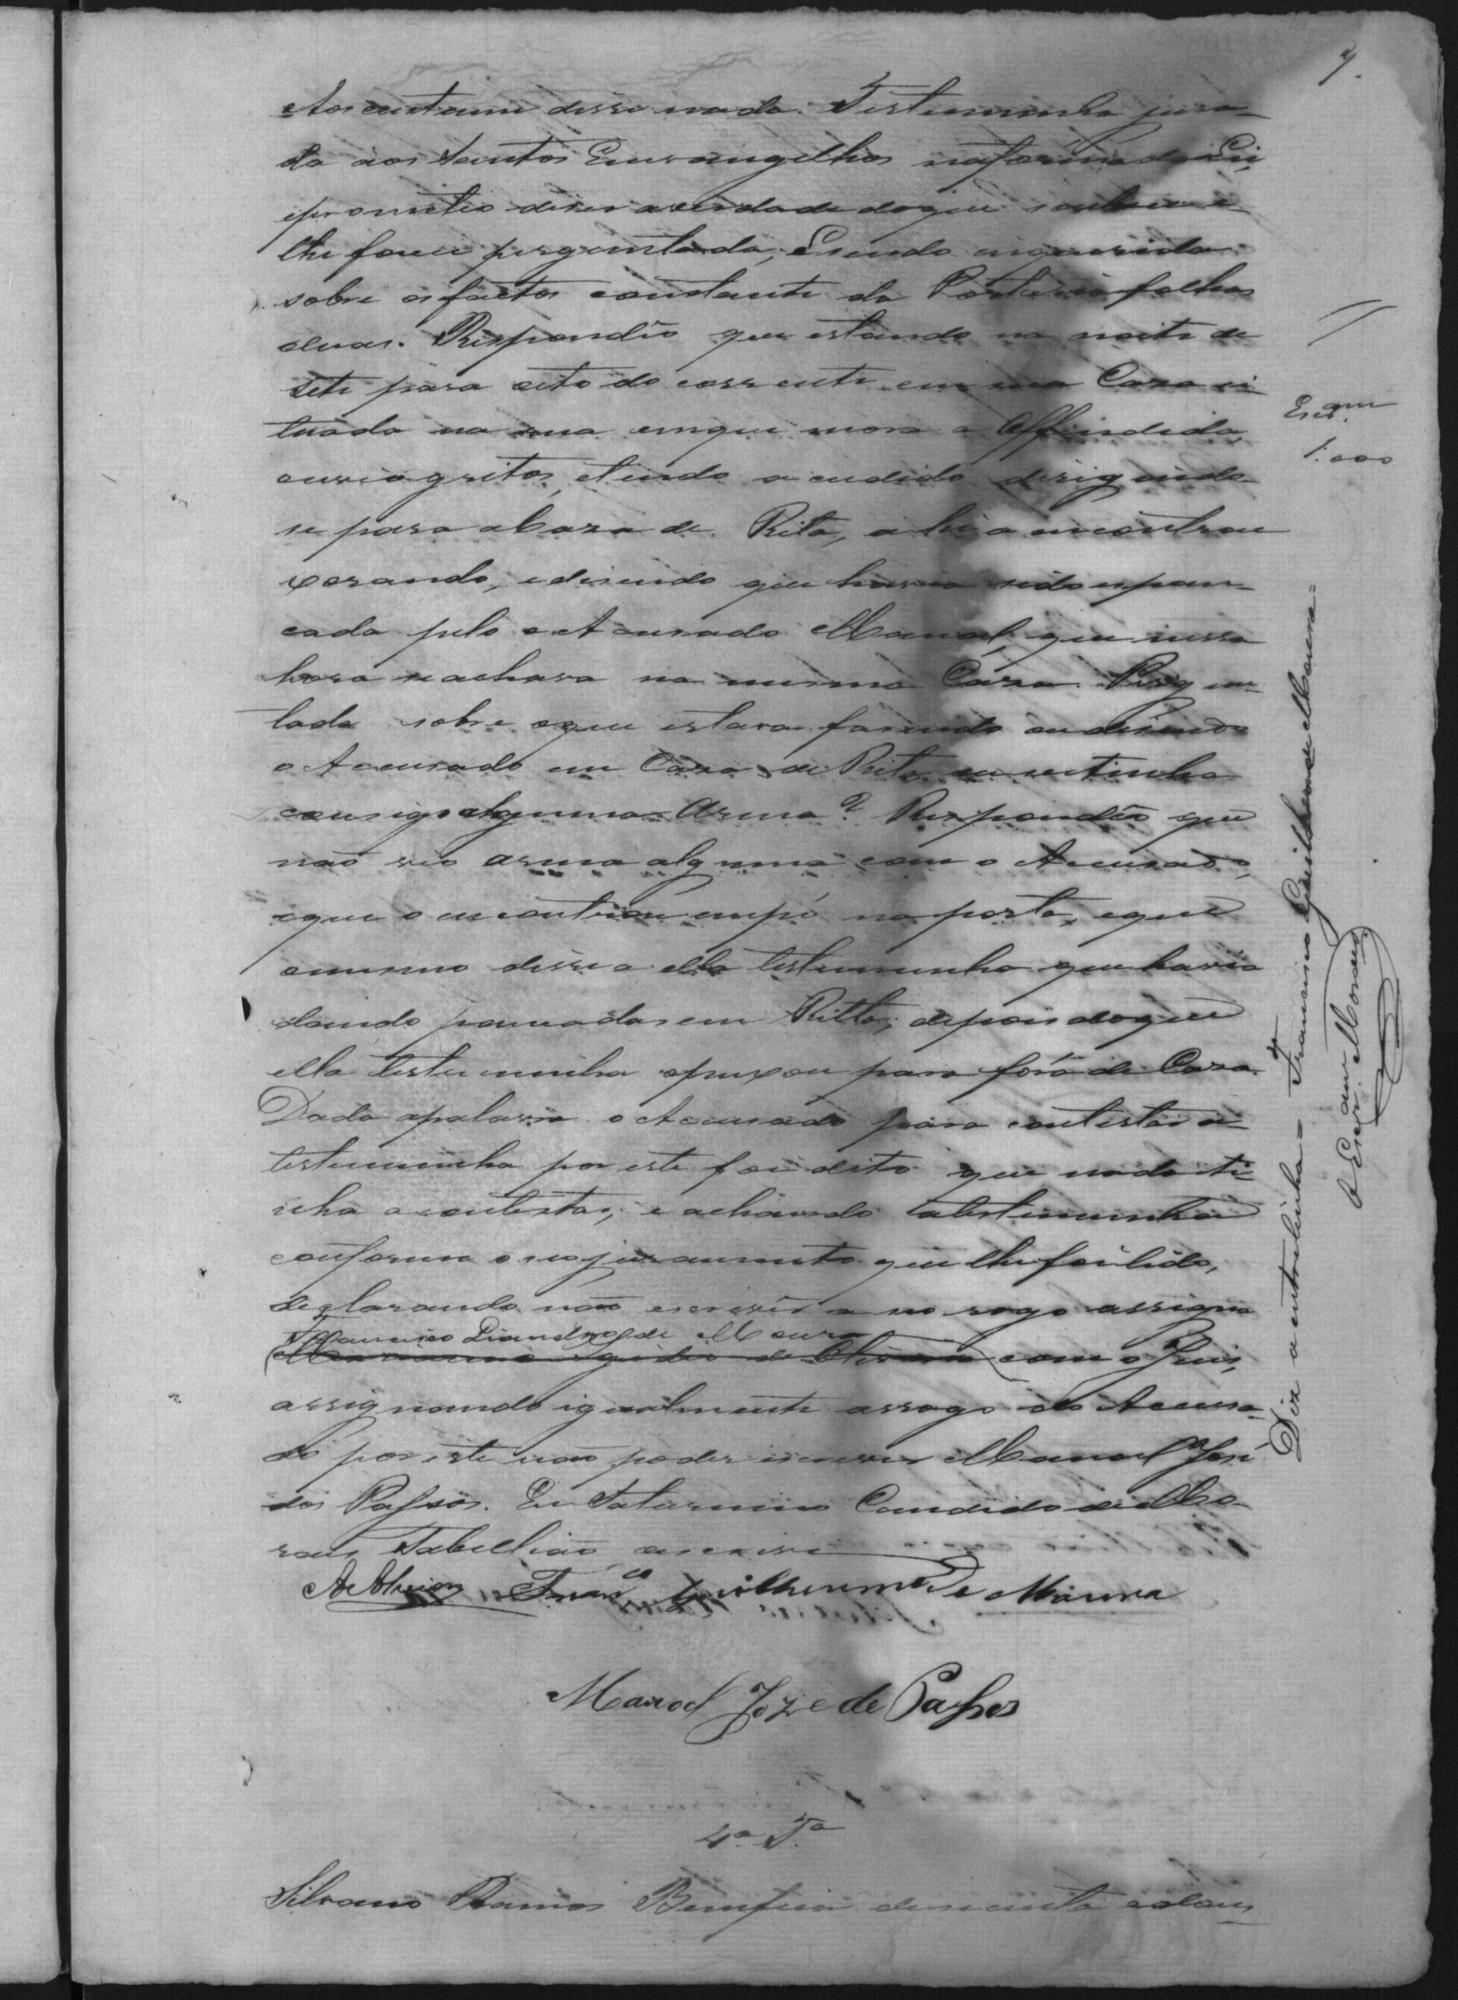 7.
Aos custumes disse nada. Testemunha jura-
da aos Santos Evangelhos na forma da Lei,
eprometeo diser averdade doque soubesse e
lhe fosse perguntada, Esendo enquerida
sobre osfactos constante da Portaria folhas
duas. Respondêo que estando na noite de
sete para oito do corrente em sua Caza si-
tuada na rua emque mora a Offendida,
ouvio gritos, etendo acudido dirigindo-
se para aCaza de Rita, ahi a encontrou
xorando, edisendo que havia sido espan-
cada pelo o Acusado Manoel, que nessa
hora seachava na mesma Caza. Pergun-
tada sobre oque estava fasendo oudisendo
o Accusado em Caza de Rita, ou setinha
comsigo alguma Arma? Respondêo que
não vio arma alguma com o Accusado,
eque o encontrou empé na porta, eque
omesmo disse a ella testemunha que havia
dando pancadas em Ritta, depois doque
ella testemunha opuxou para fóra da Caza.
Dada apalavra o Accusado para contestar a
testemunha por este foi dito que nada ti-
nha a contestar, e achando atestemunha
conforme o seo juramento que lhe foi lido,
declarando não escrever a seo rogo assigna
Francisco Leandro de Moura
(Marianno Egidio de Oliveira) com o Juis,
assignando igualmente arrogo do Accusa-
do por este não poder escrever Manoel José
dos Passos. Eu Saturnino Candido de Mo-
raes Tabellião, escrevi
De Oliveira Franco Guilherme de Moura
Manoel Joze de Passos
4ª Tª
Silvano Ramos Bemfica desecenta ealguns
Escram
1:000
Diz a entrelinha = Francisco Guilherme de Moura =
O Escram Moraes